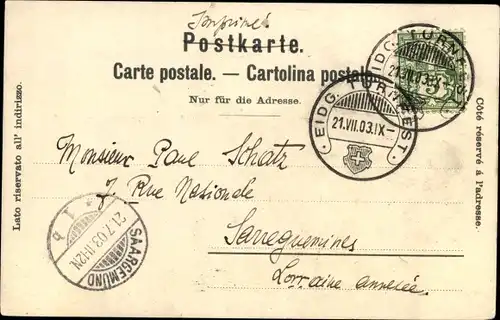 Imprimé
Postkarte.
Carte postale. — Cartolina postale.
Nur für die Adresse.
EIDG. TURNFEST.
21.VII.03.
5
EIDG. TURNFEST.
21.VII.03.IX-
Lato riservato all' indirizzo.
Côté réservé à l'adresse.
Monsieur Paul Schatz
7. Rue Nationale
Sarreguemines
Lorraine annexée.
SAARGEMÜND
21.7.03.
* 1 b